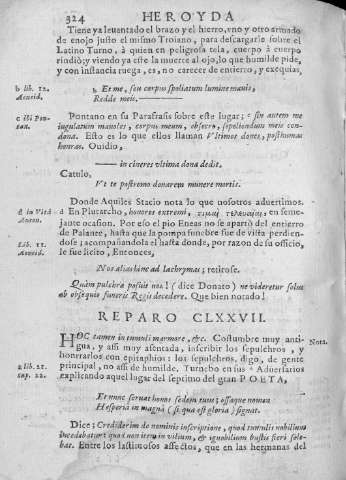 324 HEROYDA
Tiene ya leuantado el brazo y el hierro, vno y otro armado
de enojo justo el mismo Troiano, para descargarle sobre el
Latino Turno, à quien en peligrosa tela, cuerpo à cuerpo
rindiò; y viendo ya este la muerte al ojo, lo que humilde pide,
y con instancia ruega, es, no carecer de entierro, y exequias,
b lib. 12.
Aeneid.
b Et me, seu corpus spoliatum lumine mauis,
Redde meis,
c ibi Pon-
tan.
Pontano en su Parafrasis sobre este lugar; c sin autem me
iugulatum mauoles, corpus meum, obsecro, sepeliendum meis con-
dona. Esto es lo que ellos llaman Vltimos dones, posthumas
honras. Ouidio,
in cineres vltima dona dedit.
Catulo,
Vt te postremo donarem munere mortis.
Donde Aquiles Stacio nota lo que nosotros aduertimos.
d in Vitâ
Anton.
d En Plutarcho, honores extremi, τιμαὶ τελευταῖαι, en seme-
jante ocasion. Por eso el pio Eneas no se apartò del entierro
de Palante, hasta que la pompa funebre fue de vista perdien-
dose; acompañandola el hasta donde, por razon de su officio,
le fue licito, Entonces,
Lib. 11.
Aeneid.
Nos alias hinc ad lachrymas; retirose.
Quàm pulchrè posuit nos! (dice Donato) ne videretur solus
ab obsequio funeris Regis decedere. Que bien notado!
REPARO CLXXVII.
HOC tamen in tumuli marmore, &c. Costumbre muy anti-
gua, y assi muy asentada, inscribir los sepulchros, y
honrarlos con epitaphios: los sepulchros, digo, de gente
principal, no assi de humilde. Turnebo en sus a Aduersarios
explicando aquel lugar del septimo del gran POETA,
Nota.
a lib. 21.
cap. 22.
Et nunc seruat honos sedem tuus; ossaque nomen
Hesperia in magnâ (si qua est gloria) signat.
Dice; Crediderim de nominis inscriptione, quod tumulis nobilium
incedebatur: quod non item in vilium, & ignobilium bustis fieri sole-
bat. Entre los lastimosos affectos, que en las hermanas del